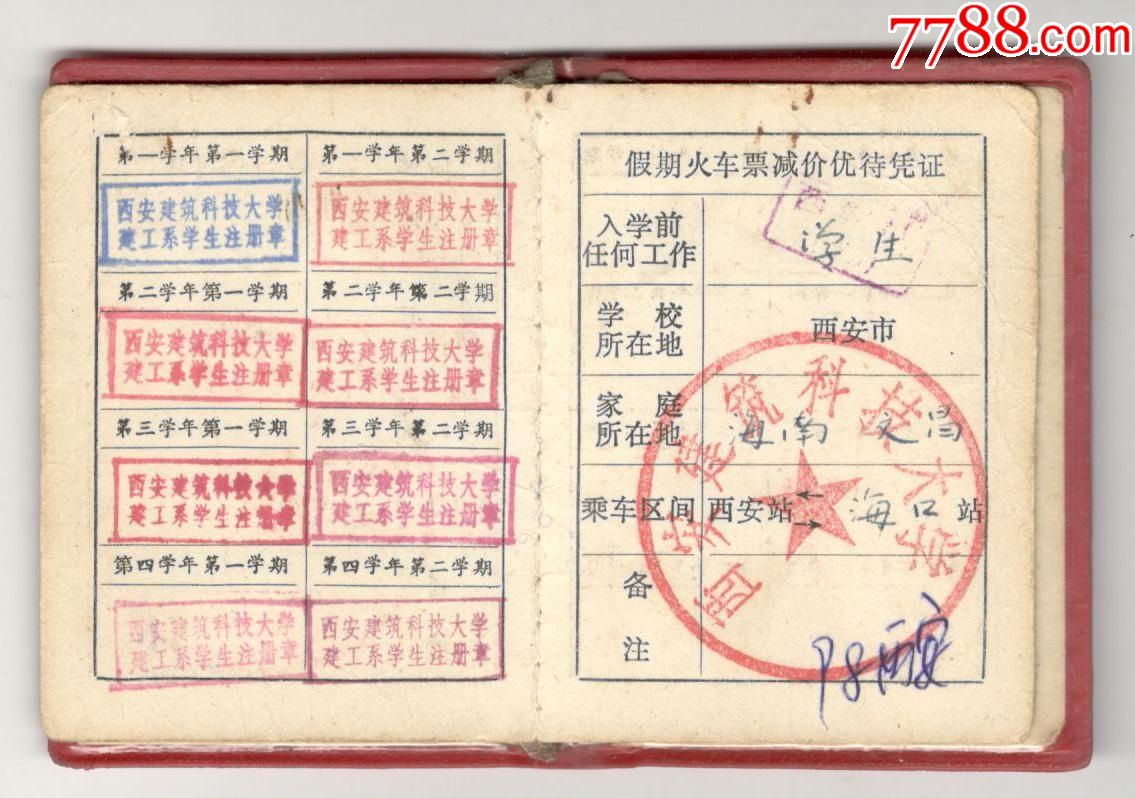 7788.com
第一学年第一学期
第一学年第二学期
西安建筑科技大学
建工系学生注册章
西安建筑科技大学
建工系学生注册章
第二学年第一学期
第二学年第二学期
西安建筑科技大学
建工系学生注册章
西安建筑科技大学
建工系学生注册章
第三学年第一学期
第三学年第二学期
西安建筑科技大学
建工系学生注册章
西安建筑科技大学
建工系学生注册章
第四学年第一学期
第四学年第二学期
西安建筑科技大学
建工系学生注册章
西安建筑科技大学
建工系学生注册章
假期火车票减价优待凭证
入学前
任何工作
学生
学校
所在地
西安市
家庭
所在地
海南 文昌
乘车区间
西安站
海口 站
备
注
西安建筑科技大学